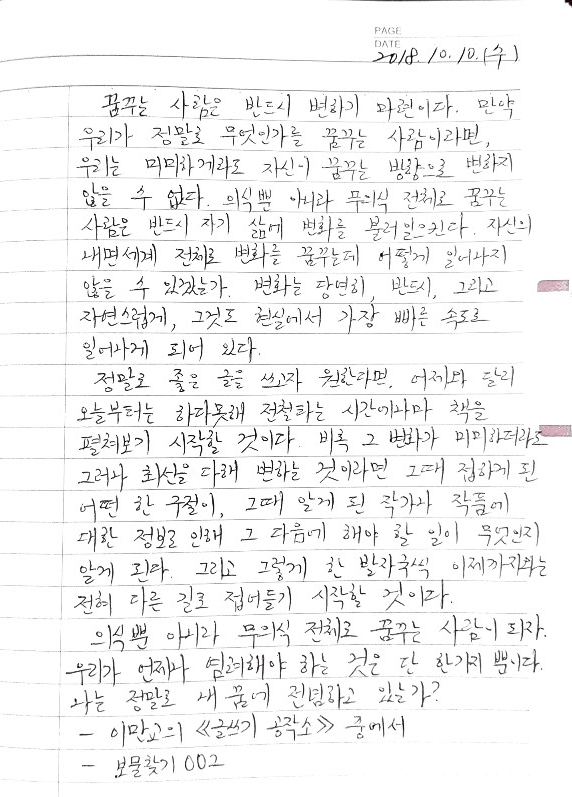 PAGE
DATE
2018. 10. 10. (수)
꿈꾸는 사람은 반드시 변하기 마련이다. 만약
우리가 정말로 무엇인가를 꿈꾸는 사람이라면,
우리는 미미하게라도 자신이 꿈꾸는 방향으로 변하지
않을 수 없다. 의식뿐 아니라 무의식 전체로 꿈꾸는
사람은 반드시 자기 삶에 변화를 불러일으킨다. 자신의
내면세계 전체로 변화를 꿈꾸는데 어떻게 일어나지
않을 수 있겠는가. 변화는 당연히, 반드시, 그리고
자연스럽게, 그것도 현실에서 가장 빠른 속도로
일어나게 되어 있다.
정말로 좋은 글을 쓰고자 원한다면, 어제와 달리
오늘부터는 하다못해 전철타는 시간에나마 책을
펼쳐보기 시작할 것이다. 비록 그 변화가 미미하더라도
그러나 최선을 다해 변하는 것이라면 그때 접하게 된
어떤 한 구절이, 그때 알게 된 작가나 작품에
대한 정보로 인해 그 다음에 해야 할 일이 무엇인지
알게 된다. 그리고 그렇게 한 발자국씩 이제까지와는
전혀 다른 길로 접어들기 시작할 것이다.
의식뿐 아니라 무의식 전체로 꿈꾸는 사람이 되자.
우리가 언제나 염려해야 하는 것은 단 한가지 뿐이다.
나는 정말로 내 꿈에 전념하고 있는가?
- 이만교의 《글쓰기 공작소》 중에서
- 보물찾기 002